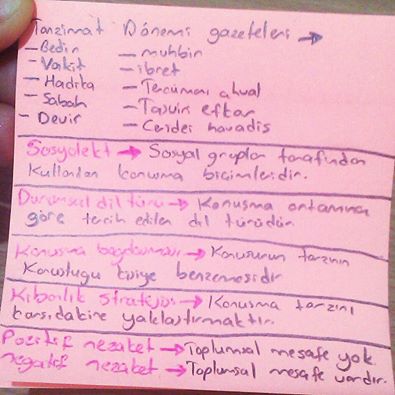 Tanzimat Dönemi gazeteleri →
– Bedir – muhbir
– Vakit – ibret
– Hadika – Tercümanı ahval
– Sabah – Tasviri efkar
– Devir – Ceridei havadis
Sosyolekt → Sosyal gruplar tarafından
kullanılan konuşma biçimleridir.
Durumsal dil türü → Konuşma ortamına
göre tercih edilen dil türüdür
Konuşma → Konuşurun tarzının
Konuştuğu kişiye benzemesidir
Kibarlık stratejisi → Konuşma tarzını
karşıdakine yaklaştırmaktır.
Pozitif nezaket → Toplumsal mesafe yok.
negatif nezaket → Toplumsal mesafe vardır.